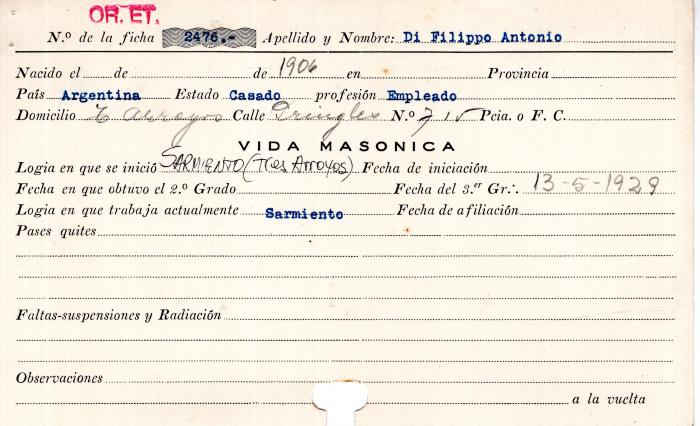 OR. ET.
N.º de la ficha 2476.- Apellido y Nombre: Di Filippo Antonio
Nacido el de de 1906 en Provincia
País Argentina Estado Casado profesión Empleado
Domicilio Calle Pringles N.º 715 Pcia. o F. C.
VIDA MASONICA
Logia en que se inició SARMIENTO (Tres Arroyos) Fecha de iniciación
Fecha en que obtuvo el 2.º Grado Fecha del 3.er Gr∴ 13-5-1929
Logia en que trabaja actualmente Sarmiento Fecha de afiliación
Pases quites
Faltas-suspensiones y Radiación
Observaciones
a la vuelta